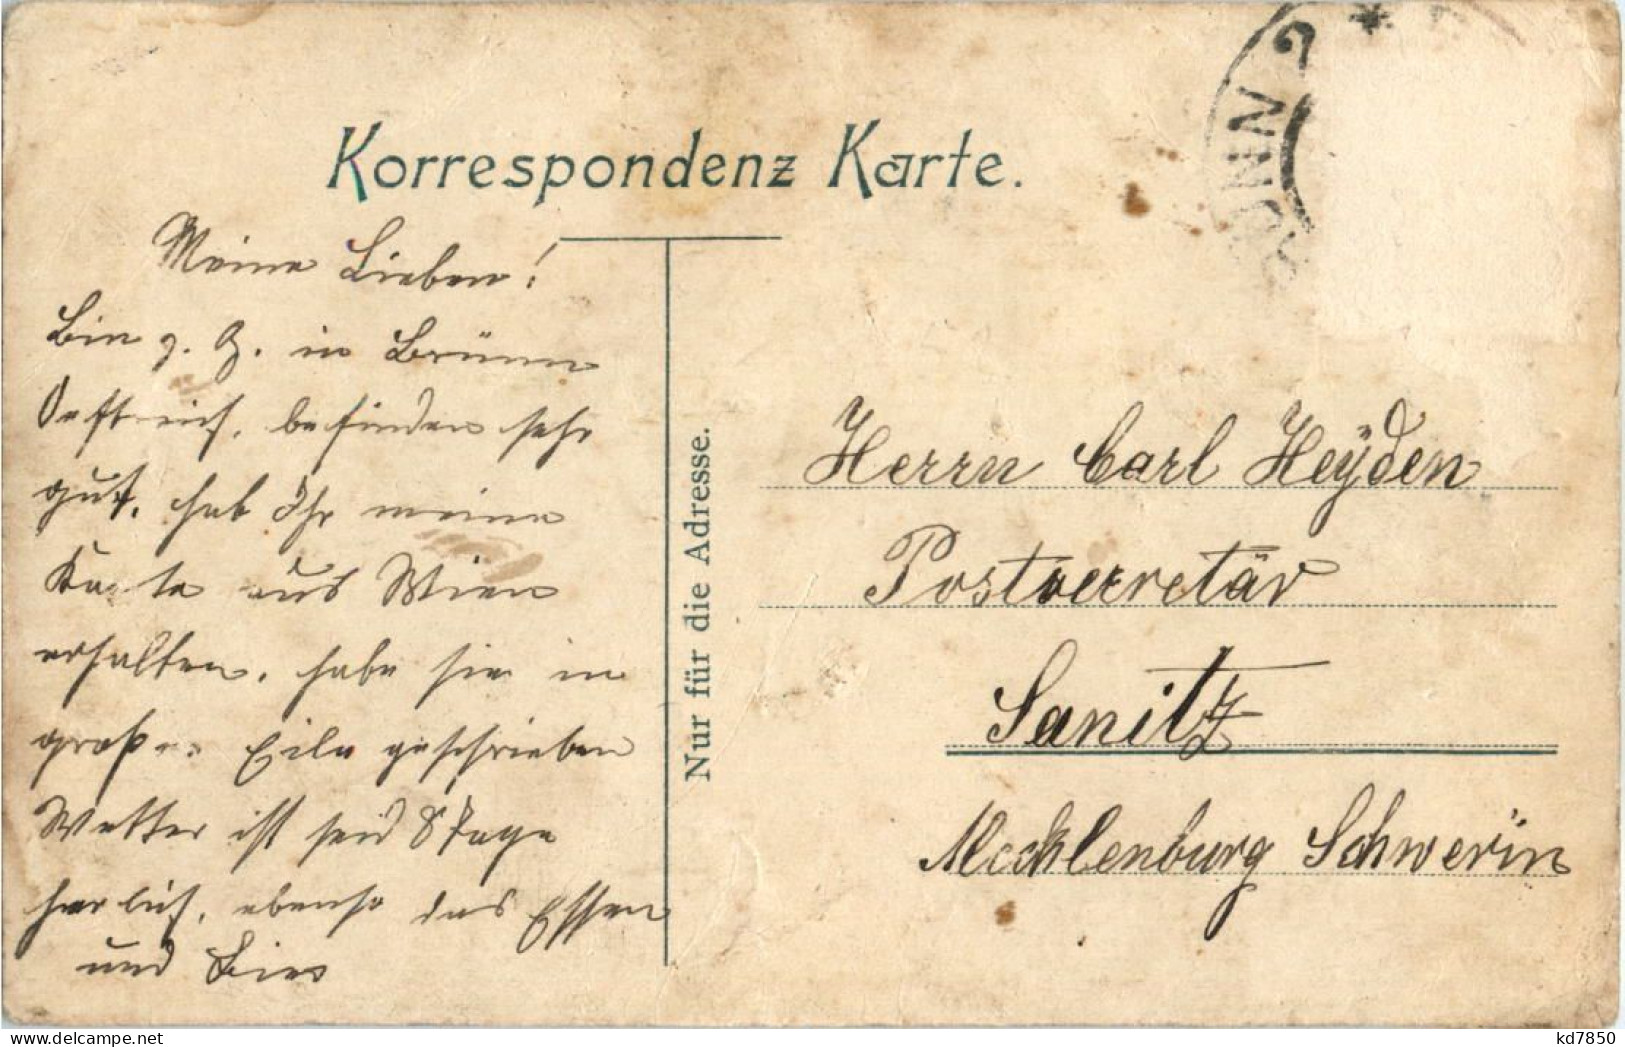 Korrespondenz Karte.
Meine Lieben!
Bin z. Z. in Brünn
Oestreich, befinden sehr
gut, hab Ihr meine
Karte aus Wien
erhalten, habe sie in
großer Eile geschrieben
Wetter ist seid 8 Tage
herlich, ebenso das Essen
und Bier
Nur für die Adresse.
BRÜNN 2
Herrn Carl Heÿden
Postsecretär
Sanitz
Mecklenburg Schwerin
kd7850